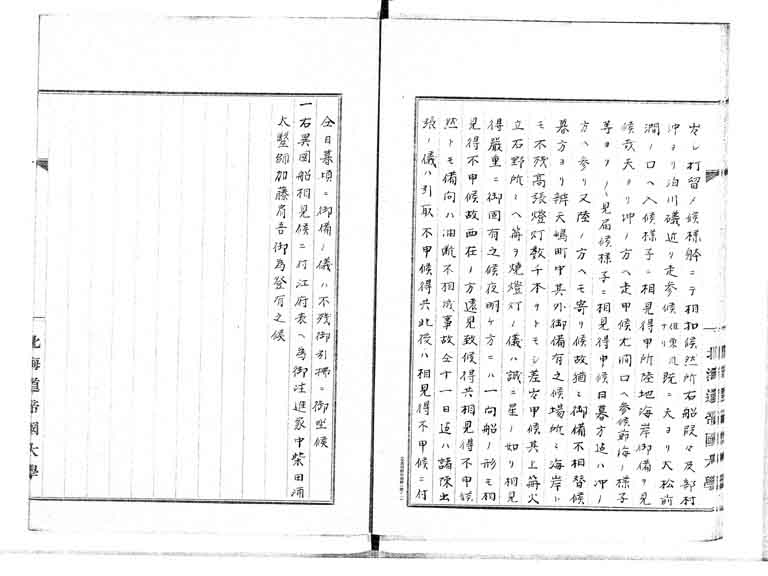 ヲシ打留メ候様躰ニテ相扣候然所右船段々及部村
沖ヨリ泊川礒近ク走参候但東風既ニ夫ヨリ大松前
澗ノ口ヘ入候様子ニ相見得申所陸地海岸御備ヲ見
候哉夫ヨリ沖ノ方ヘ走申候尤澗口ヘ参候節海ノ様子
等ヨクノヽ見届候様子ニ相見得申候日暮方迄ハ沖ノ
方ヘ参リ又陸ノ方ヘモ寄リ候故猶ニ御備不相替候
暮方ヨリ辨天嶋町中其外御備有之候場所ニ海岸ニ
モ不残高張燈灯数千本ヲトモシ差出申候其上篝火
立石野所ノヘ篝ヲ焼燈灯ノ儀ハ誠ニ星ノ如リ相見
得嚴重ニ御固有之候夜明ケ方ニハ一向船ノ形モ相
見得不申候故西在ノ方遠見致候得共相見得不申候
然トモ備向ハ油断不相成事故仝十一日迄ハ諸陳出
張ノ儀ハ引取不申候得共此後ハ相見得不申候ニ付
仝日暮頃ニ御備ノ儀ハ不残御引拂ニ御坐候
一右異國船相見候ニ付江府表ヘ為御注進家中柴田涌
犬鑿師加藤肩吾御為登有之候
北海道帝國大學
北海道帝國大學